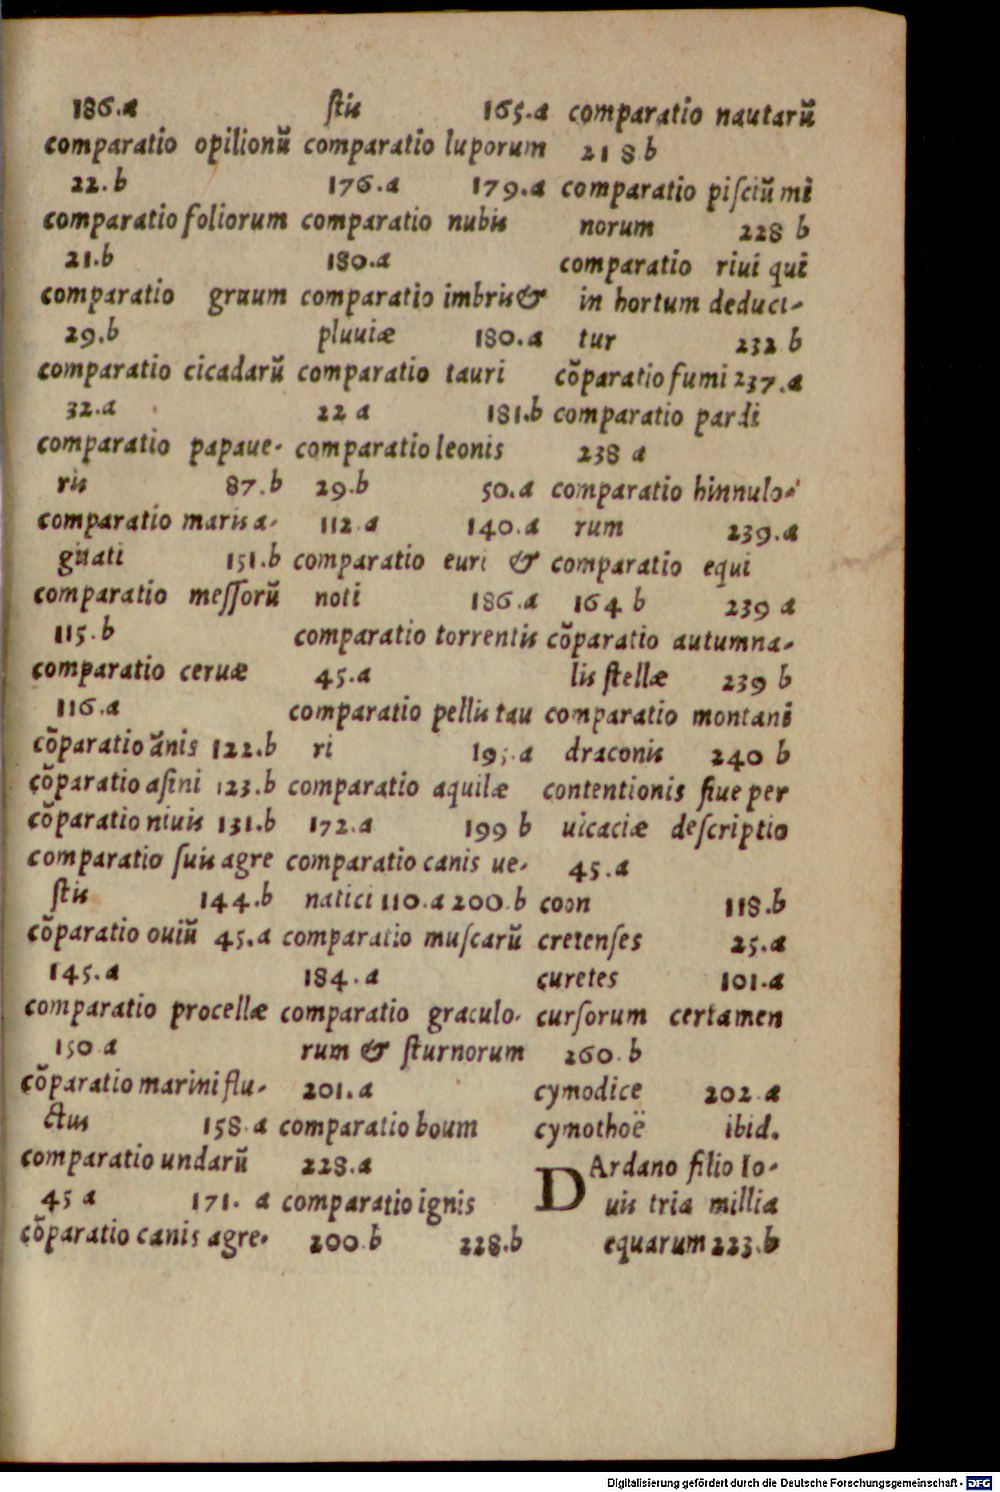 186.a
comparatio opilionũ
22.b
comparatio foliorum
21.b
comparatio gruum
29.b
comparatio cicadarũ
32.a
comparatio papaue-
ris 87.b
comparatio maris a-
gitati 151.b
comparatio meſſorũ
115.b
comparatio ceruæ
116.a
cõparatio ãnis 122.b
cõparatio aſini 123.b
cõparatio niuis 131.b
comparatio ſuis agre
ſtis 144.b
cõparatio ouiũ 45.a
145.a
comparatio procellæ
150 a
cõparatio marini flu-
ctus 158.a
comparatio undarũ
45 a 171. a
cõparatio canis agre-
ſtis 165.a
comparatio luporum
176.a 179.a
comparatio nubis
180.a
comparatio imbris &
pluuiæ 180.a
comparatio tauri
22 a 181.b
comparatio leonis
29.b 50.a
112.a 140.a
comparatio euri &
noti 186.a
comparatio torrentis
45.a
comparatio pellis tau
ri 195.a
comparatio aquilæ
172.a 199 b
comparatio canis ue-
natici 110.a 200.b
comparatio muſcarũ
184.a
comparatio graculo-
rum & ſturnorum
201.a
comparatio boum
228.a
comparatio ignis
200.b 228.b
comparatio nautarũ
218 b
comparatio piſciũ mi
norum 228 b
comparatio riui qui
in hortum deduci-
tur 232 b
cõparatio fumi 237.a
comparatio pardi
238 a
comparatio hinnulo-
rum 239.a
comparatio equi
164 b 239 a
cõparatio autumna-
lis ſtellæ 239 b
comparatio montani
draconis 240 b
contentionis ſiue per
uicaciæ deſcriptio
45.a
coon 118.b
cretenſes 25.a
curetes 101.a
curſorum certamen
260.b
cymodice 202.a
cymothoë ibid.
DArdano filio Io-
uis tria millia
equarum 223.b
Digitalisierung gefördert durch die Deutsche Forschungsgemeinschaft - DFG